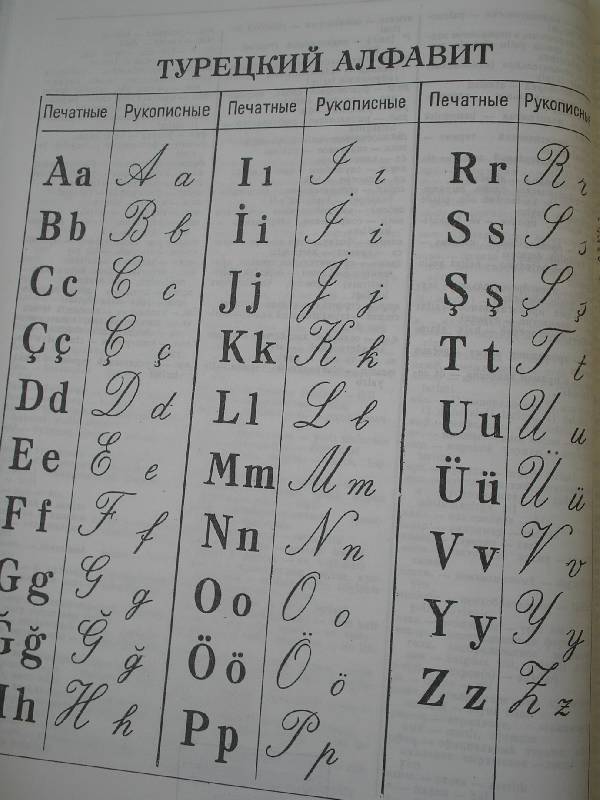 ТУРЕЦКИЙ АЛФАВИТ
Печатные Рукописные Печатные Рукописные Печатные Рукописные
Aa A a Iı I ı Rr R r
Bb B b İi İ i Ss S s
Cc C c Jj J j Şş Ş ş
Çç Ç ç Kk K k Tt T t
Dd D d Ll L l Uu U u
Ee E e Mm M m Üü Ü ü
Ff F f Nn N n Vv V v
Gg G g Oo O o Yy Y y
Ğğ Ğ ğ Öö Ö ö Zz Z z
Hh H h Pp P p